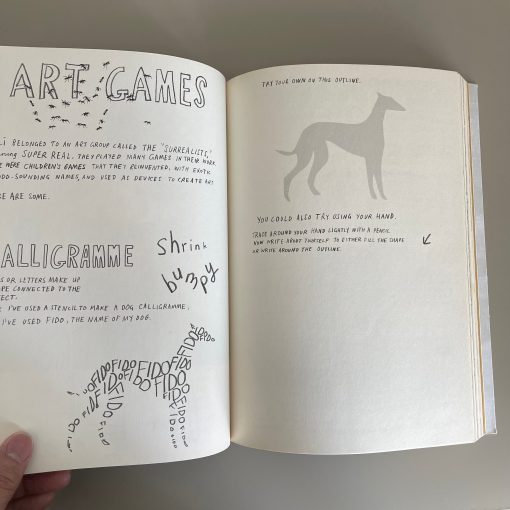 ART GAMES
LI BELONGED TO AN ART GROUP CALLED THE "SURREALISTS,"
SUPER REAL. THEY PLAYED MANY GAMES IN THEIR WORK
WERE CHILDREN'S GAMES THAT THEY REINVENTED, WITH EXOTIC
ODD-SOUNDING NAMES, AND USED AS DEVICES TO CREATE ART
RE ARE SOME.
ALLIGRAMME
shrink
bumpy
S OR LETTERS MAKE UP
PE CONNECTED TO THE
ECT.
I'VE USED A STENCIL TO MAKE A DOG CALLIGRAMME,
I'VE USED FIDO, THE NAME OF MY DOG.
FIDO FIDO FIDO FIDO FIDO
TRY YOUR OWN ON THIS OUTLINE.
YOU COULD ALSO TRY USING YOUR HAND.
TRACE AROUND YOUR HAND LIGHTLY WITH A PENCIL.
NOW WRITE ABOUT YOURSELF TO EITHER FILL THE SHAPE
OR WRITE AROUND THE OUTLINE.